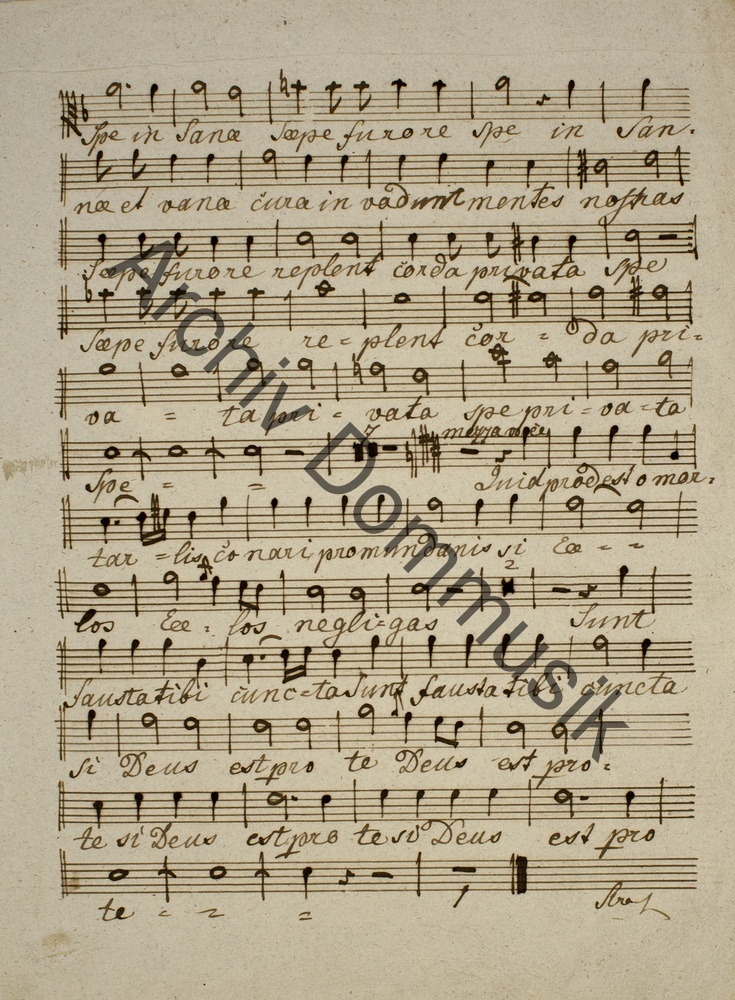 Spe in Sanæ Sæpe furore spe in San-
næ et vanæ curæ in vadunt mentes nostras
Sæpe furore replent corda privata spe
Sæpe furore re = plent cor = da pri=
va = ta pri = vata spe pri = va = ta
7 mezza voce
Spe = = Quid prodest o mor=
tar = lis conari pro mundanis si Cœ = =
2
los Cœ = los negligas Sunt
fausta tibi cunc = ta Sunt fausta tibi cuncta
si Deus est pro te Deus est pro =
te si Deus est pro te si Deus est pro
te = = =
Archiv Dommusik